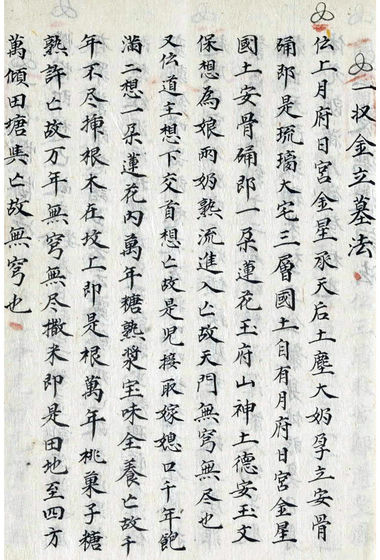 一扠金立墓法
伝上月府日宮金星承天后土塵大奶孕立安骨
硧即是琉璃大宅三層國土自有月府日宮金星
國土安骨硧即一朶蓮花玉府山神土德安玉文
保想為娘兩奶熟流進入亡故天門無窮無尽也
又伝道主想下交首想亡故是児接取嫁媳口千年飽
滿二想二朶蓮花内萬年糖熟漿宝味全養亡故千
年不尽揷根木在坟上即是根萬年桃菓子糖
熟許亡故万年無穹無尽撒米即是田地至四方
萬傾田塘與亡故無穹也